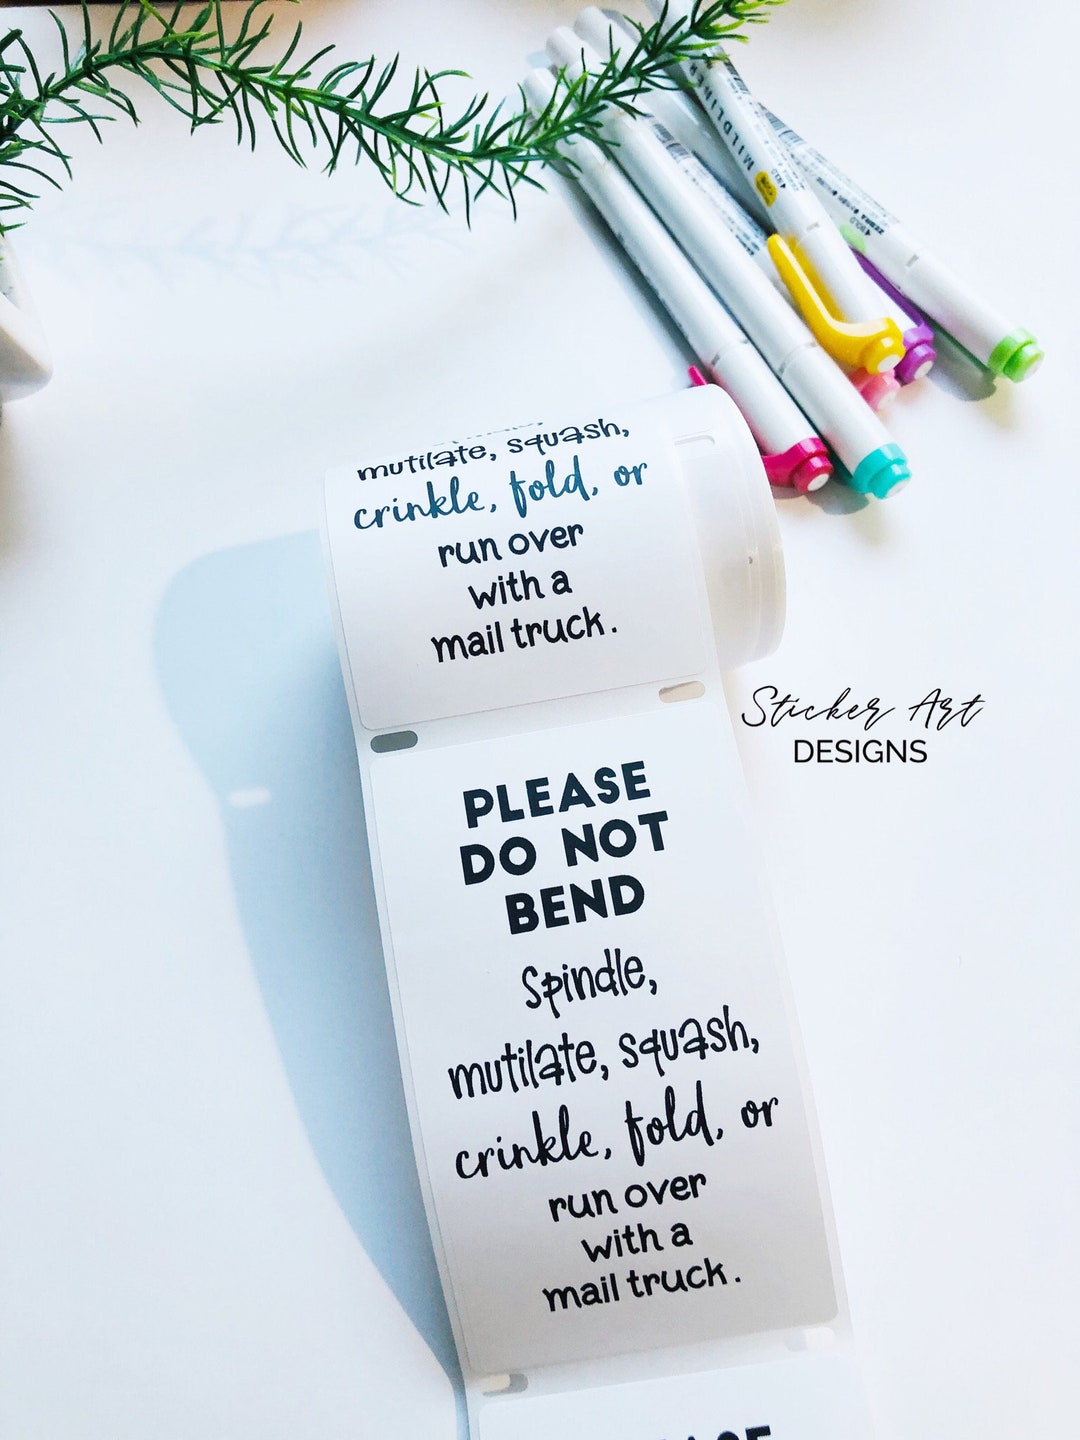 MILDLINER
mutilate, squash,
crinkle, fold, or
run over
with a
mail truck.
Sticker Art
DESIGNS
PLEASE
DO NOT
BEND
Spindle,
mutilate, squash,
crinkle, fold, or
run over
with a
mail truck.